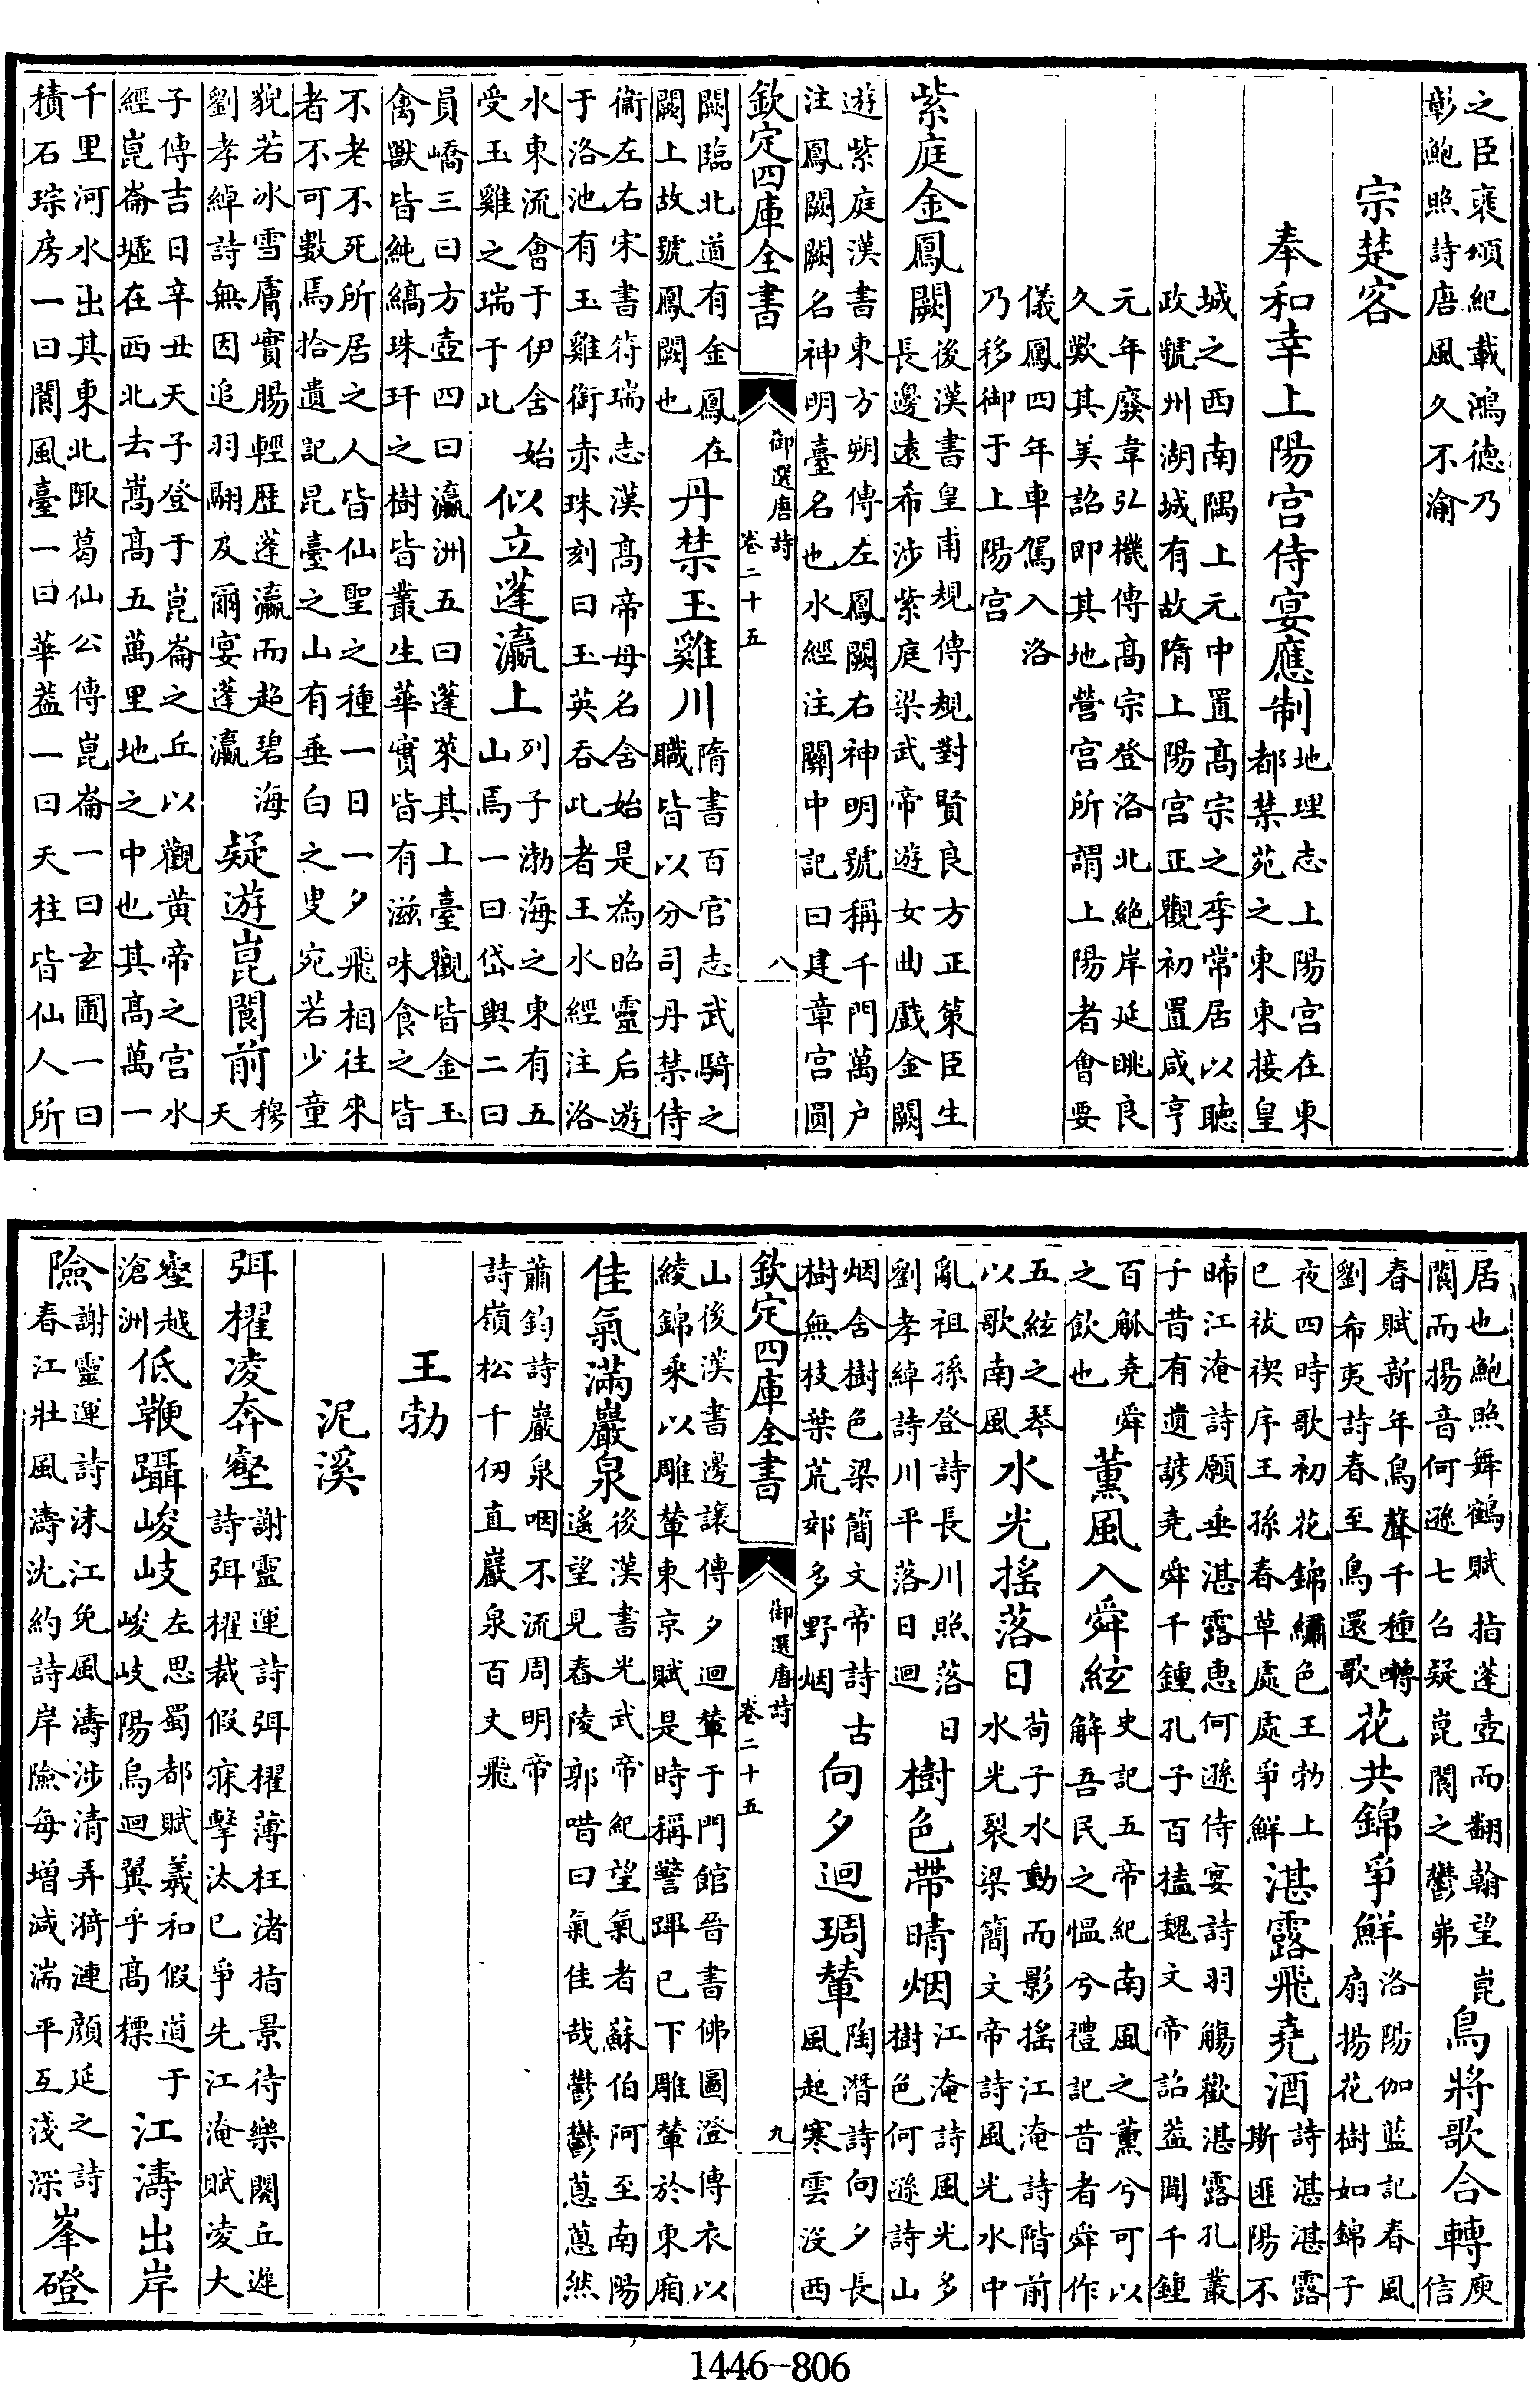 之臣褒頌紀載鴻徳乃
彰鮑照詩唐風久不渝
宗楚客
奉和幸上陽宫侍宴應制
地理志上陽宫在東
都禁苑之東東接皇
城之西南隅上元中置髙宗之季常居以聽
政虢州湖城有故隋上陽宫正觀初置咸亨
元年廢韋弘機傳髙宗登洛北絶岸延眺良
久歎其美詔即其地營宫所謂上陽者會要
儀鳳四年車駕入洛
乃移御于上陽宫
紫庭金鳳闕
後漢書皇甫規傳規對賢良方正策臣生
長邊遠希涉紫庭梁武帝遊女曲戲金闕
遊紫庭漢書東方朔傳左鳳闕右神明號稱千門萬户
注鳳闕闕名神明臺名也水經注闗中記曰建章宫圓
欽定四庫全書
御選唐詩
卷二十五
八
闕臨北道有金鳳在
闕上故號鳳闕也
丹禁玉雞川
隋書百官志武騎之
職皆以分司丹禁侍
衞左右宋書符瑞志漢髙帝母名含始是為昭靈后遊
于洛池有玉雞銜赤珠刻曰玉英吞此者王水經注洛
水東流會于伊含始
受玉雞之瑞于此
似立蓬瀛上
列子渤海之東有五
山焉一曰岱輿二曰
員嶠三曰方壺四曰瀛洲五曰蓬萊其上臺觀皆金玉
禽獸皆純縞珠玕之樹皆叢生華實皆有滋味食之皆
不老不死所居之人皆仙聖之種一日一夕飛相往來
者不可數焉拾遺記昆臺之山有垂白之叟宛若少童
貌若冰雪膚實腸輕歴蓬瀛而超碧海
劉孝綽詩無因追羽翮及爾宴蓬瀛
疑遊崑閬前
穆
天
子傳吉日辛丑天子登于崑崙之丘以觀黄帝之宫水
經崑崙墟在西北去嵩髙五萬里地之中也其髙萬一
千里河水出其東北陬葛仙公傳崑崙一曰玄圃一曰
積石琮房一曰閬風臺一曰華葢一曰天柱皆仙人所
居也鮑照舞鶴賦指蓬壺而翻翰望崑
閬而揚音何遜七召疑崑閬之鬱岪
鳥將歌合轉
庾
信
春賦新年鳥聲千種囀
劉希夷詩春至鳥還歌
花共錦爭鮮
洛陽伽藍記春風
扇揚花樹如錦子
夜四時歌初花錦繡色王勃上
巳祓禊序王孫春草處處爭鮮
湛露飛堯酒
詩湛湛露
斯匪陽不
晞江淹詩願垂湛露惠何遜侍宴詩羽觴歡湛露孔叢
子昔有遺諺堯舜千鍾孔子百榼魏文帝詔葢聞千鍾
百觚堯舜
之飲也
薰風入舜絃
史記五帝紀南風之薰兮可以
解吾民之愠兮禮記昔者舜作
五絃之琴
以歌南風
水光搖落日
荀子水動而影搖江淹詩階前
水光裂梁簡文帝詩風光水中
亂祖孫登詩長川照落日
劉孝綽詩川平落日迴
樹色帶晴烟
江淹詩風光多
樹色何遜詩山
烟含樹色梁簡文帝詩古
樹無枝葉荒郊多野烟
向夕迴琱輦
陶潛詩向夕長
風起寒雲没西
欽定四庫全書
御選唐詩
卷二十五
九
山後漢書邊讓傳夕迴輦于門館晉書佛圖澄傳衣以
綾錦乘以雕輦東京賦是時稱警蹕已下雕輦於東廂
佳氣滿巖泉
後漢書光武帝紀望氣者蘇伯阿至南陽
遥望見舂陵郭唶曰氣佳哉鬱鬱蔥蔥然
蕭鈞詩巖泉咽不流周明帝
詩嶺松千仞直巖泉百丈飛
王勃
泥溪
弭櫂凌奔壑
謝靈運詩弭櫂薄枉渚指景待樂闋丘遲
詩弭櫂裁假寐擊汰已爭先江淹賦凌大
壑越
滄洲
低鞭躡峻岐
左思蜀都賦羲和假道于
峻岐陽烏迴翼乎髙標
江濤出岸
險
謝靈運詩洡江免風濤涉清弄漪漣顔延之詩
春江壯風濤沈約詩岸險每増減湍平互淺深
峯磴
1446-806